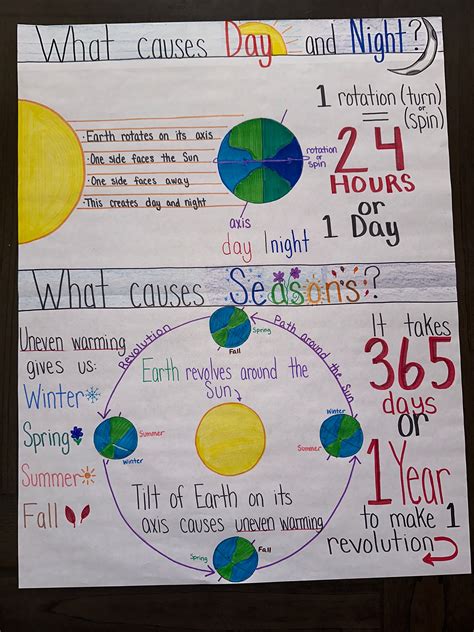 What causes Day and Night?
· Earth rotates on its axis
· One side faces the Sun
· One side faces away
· This creates day and night
rotation
or
spin
axis
day | night
1 rotation (turn)
or
= (spin)
24
HOURS
or
1 Day
What causes Seasons?
Uneven warming
gives us:
Winter
Spring
Summer
Fall
Revolution
Path around the Sun
Spring
Fall
Earth revolves around the
Sun
Summer
Winter
Winter
Summer
Tilt of Earth on its
axis causes uneven warming
Spring
Fall
It takes
365
days
or
1 Year
to make 1
revolution